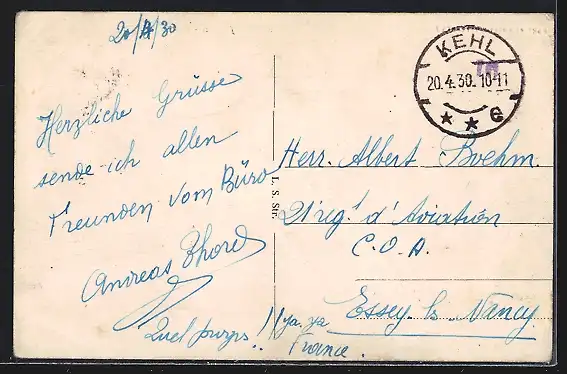 20/4/30
Herzliche Grüsse
sende ich allen
Freunden vom Büro
Andreas
Quel pays !! ya, ya
KEHL
20.4.30. 10-11
* * e
L. S. Str.
Herr. Albert Boehm.
21 reg^t d'Aviation
C.O.A.
Essey ls Nancy
France.